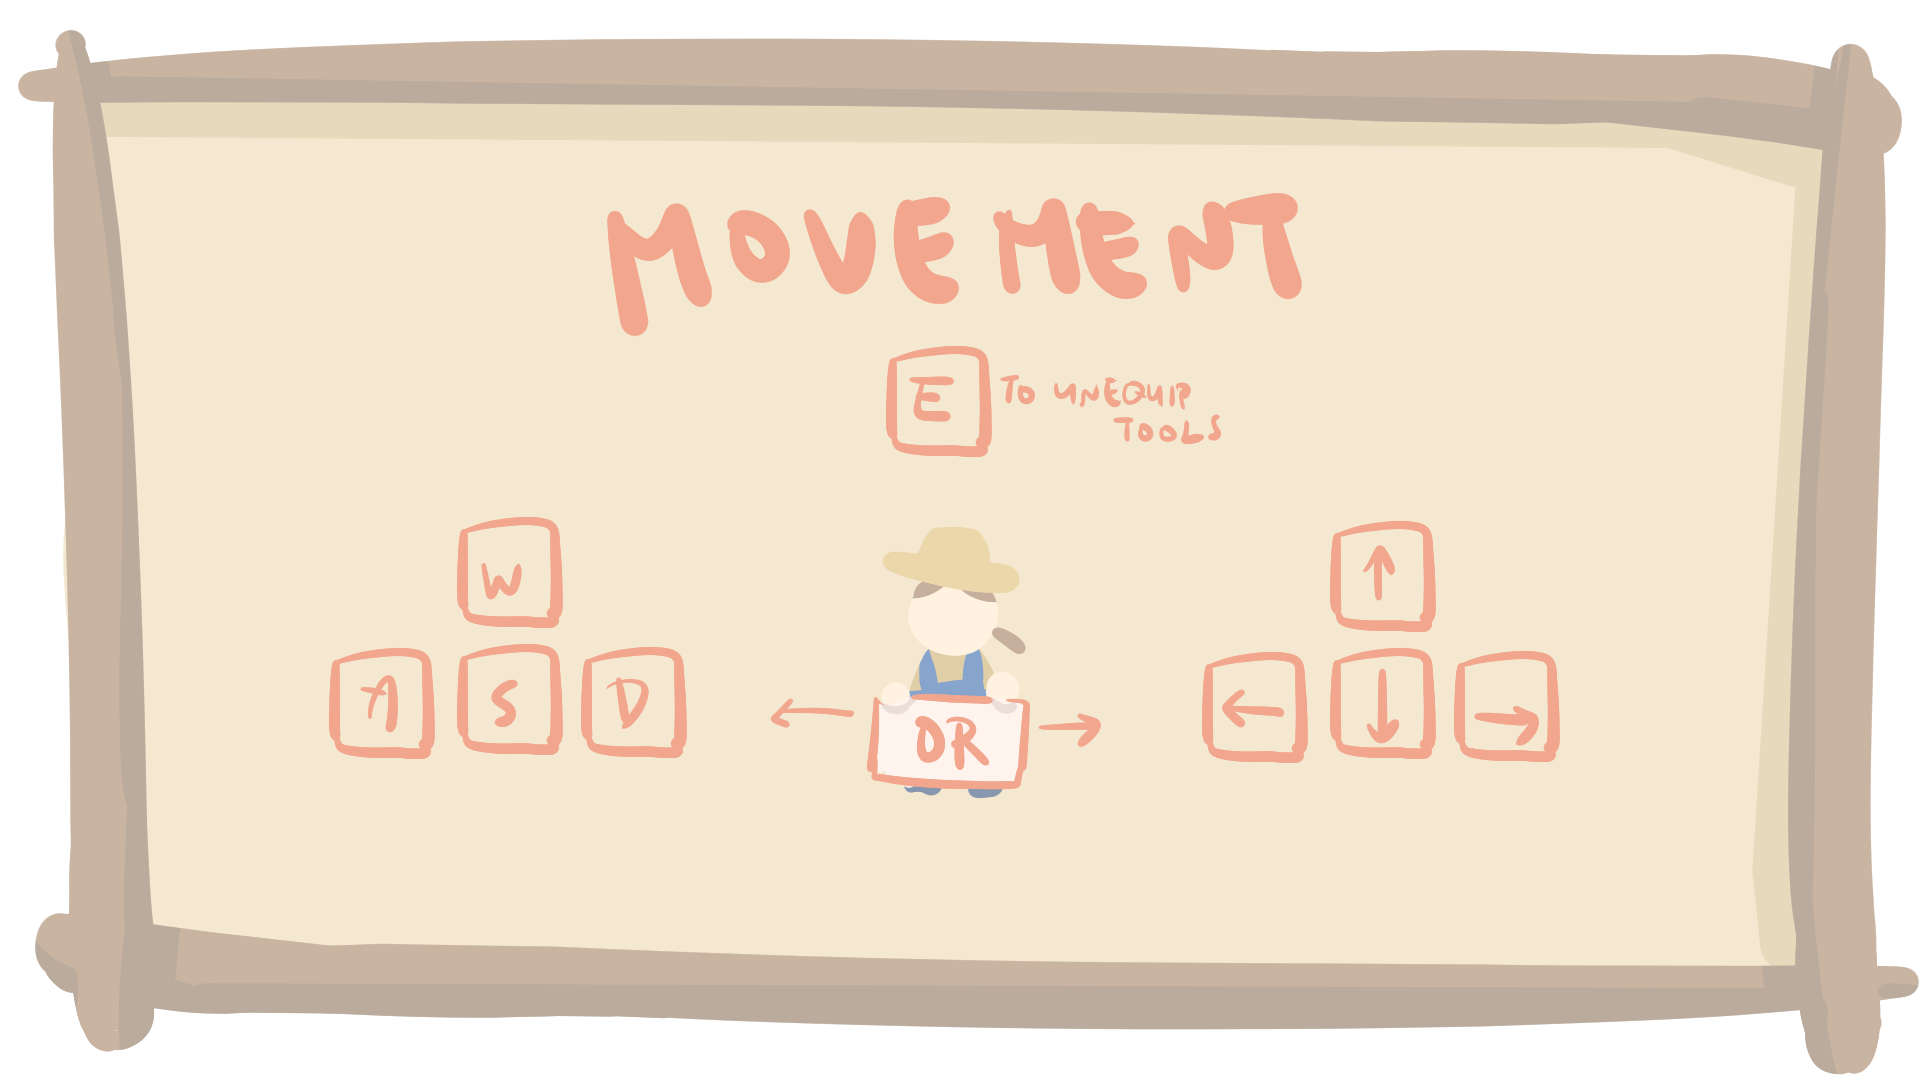 MOVEMENT
E TO UNEQUIP
TOOLS
W ↑
A S D ← OR → ← ↓ →